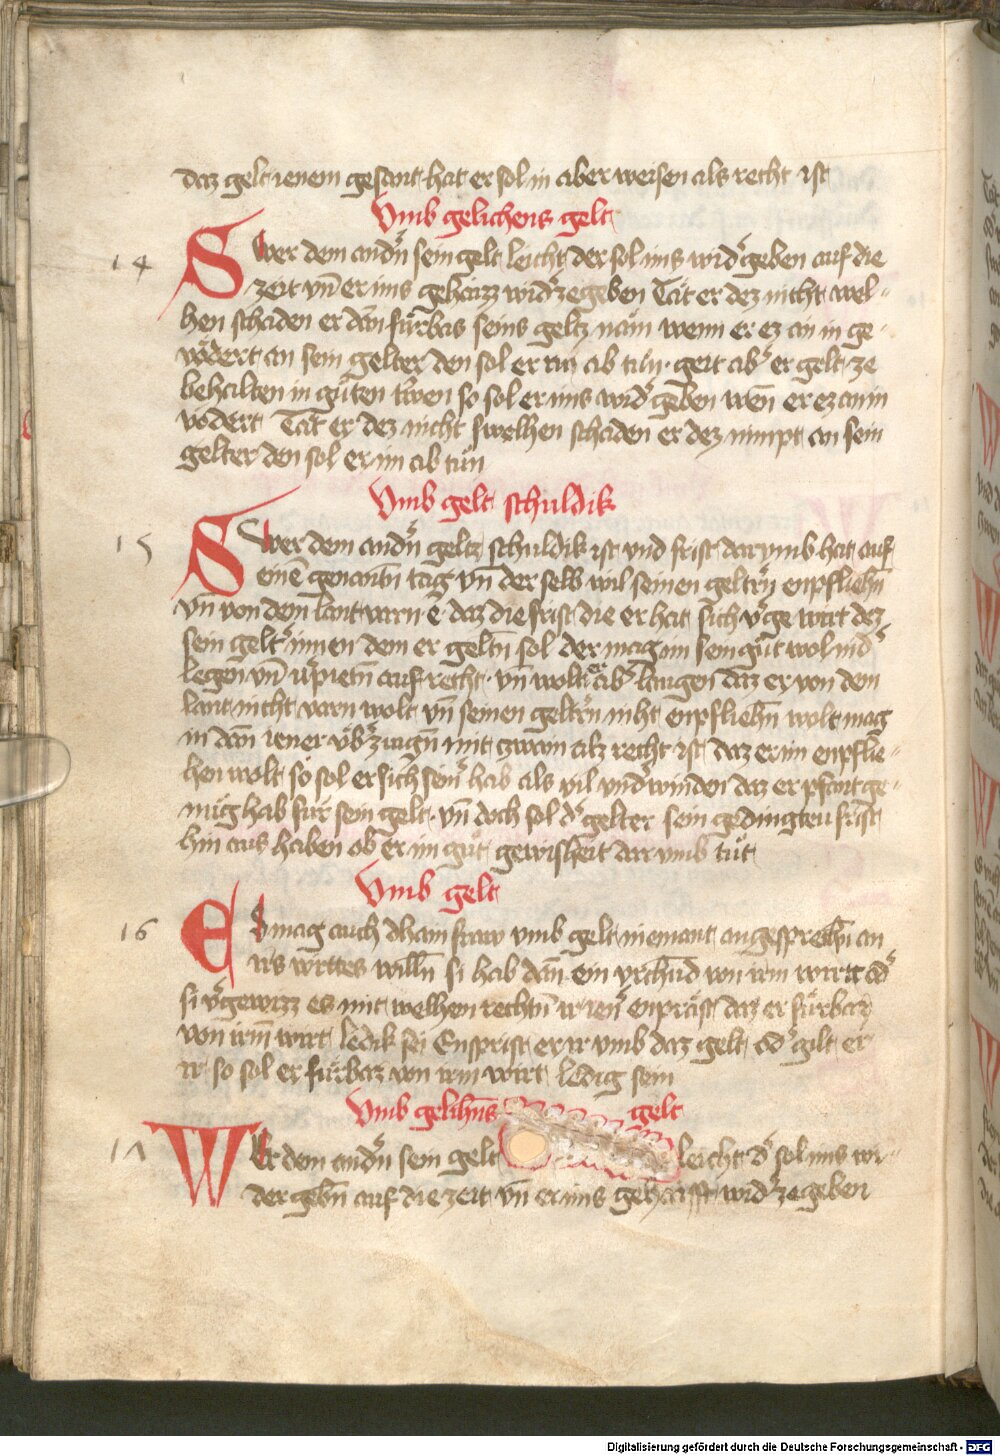 daz gelt ienem gesant hat er sol in aber weisen als recht ist
Vmb gelichens gelt
14 Swer dem andn̄ sein gelt leicht der sol ims wid̄ geben auf die
zeit vn̄ er ims gehaizz wid̄ zegeben Tät er dez nicht wel-
hen schaden er dan̄ fürbas seins geltz näm wenn er ez an in ge-
vodert an sein gelter den sol er im ab tün · geit ab̄ er gelt ze
behalten in güten trwen so sol er ims wid̄ geben wen̄ er ez an in
vodert Tät er dez nicht swelhen schaden er dez nimpt an sein
gelter den sol er im ab tün
Vmb gelt schuldik
15 Swer dem andn̄ geltz schuldik ist vnd frist darvmb hat auf
einē genantn̄ tag vn̄ der selb wil seinen geltrn̄ enpfliehn̄
vn̄ von dem lant varn ē daz die frist die er hat sich v̄ge wirt dez
sein gelt̄ innen dem er geltn̄ sol der mag im sein gut wol nid̄
legen vn̄ v̄pietn̄ auf recht · vn̄ wolt er ab̄ laugen daz er von dem
lant nicht varn wolt vn̄ seinen geltrn̄ niht enpfliehn̄ wolt mag
in dan̄ iener vb̄zeugn̄ mit zwain alz recht ist daz er im enpflie-
hen wolt so sol er sich sein̄ hab als vil vnd̄winden daz er pfant ge-
nüg hab für sein gelt · vn̄ doch sol d̄ gelter sein gedingteu frist
hin aus haben ob er im güt gewisheit dar vmb tüt
Vmb gelt
16 Ez mag auch dhain fraw vmb gelt niemant angesprechn̄ an
irs wirttes willn̄ si hab dan̄ ein vrchund von irm wirtt od̄
si v̄gewizz es mit welhem rechtn̄ ir ien̄ enpräst daz er fürbaz
von irm wirt ledik sei Ensprist er ir vmb daz gelt od̄ gilt er
ir so sol er fürbaz von irm wirt ledig sein
Vmb gelihns̄ gelt
17 Wer dem andn̄ sein gelt leicht d̄ sol ims wi-
der gebn̄ auf die zeit vn̄ er ims gehaisst wid̄ ze geben
Digitalisierung gefördert durch die Deutsche Forschungsgemeinschaft - DFG